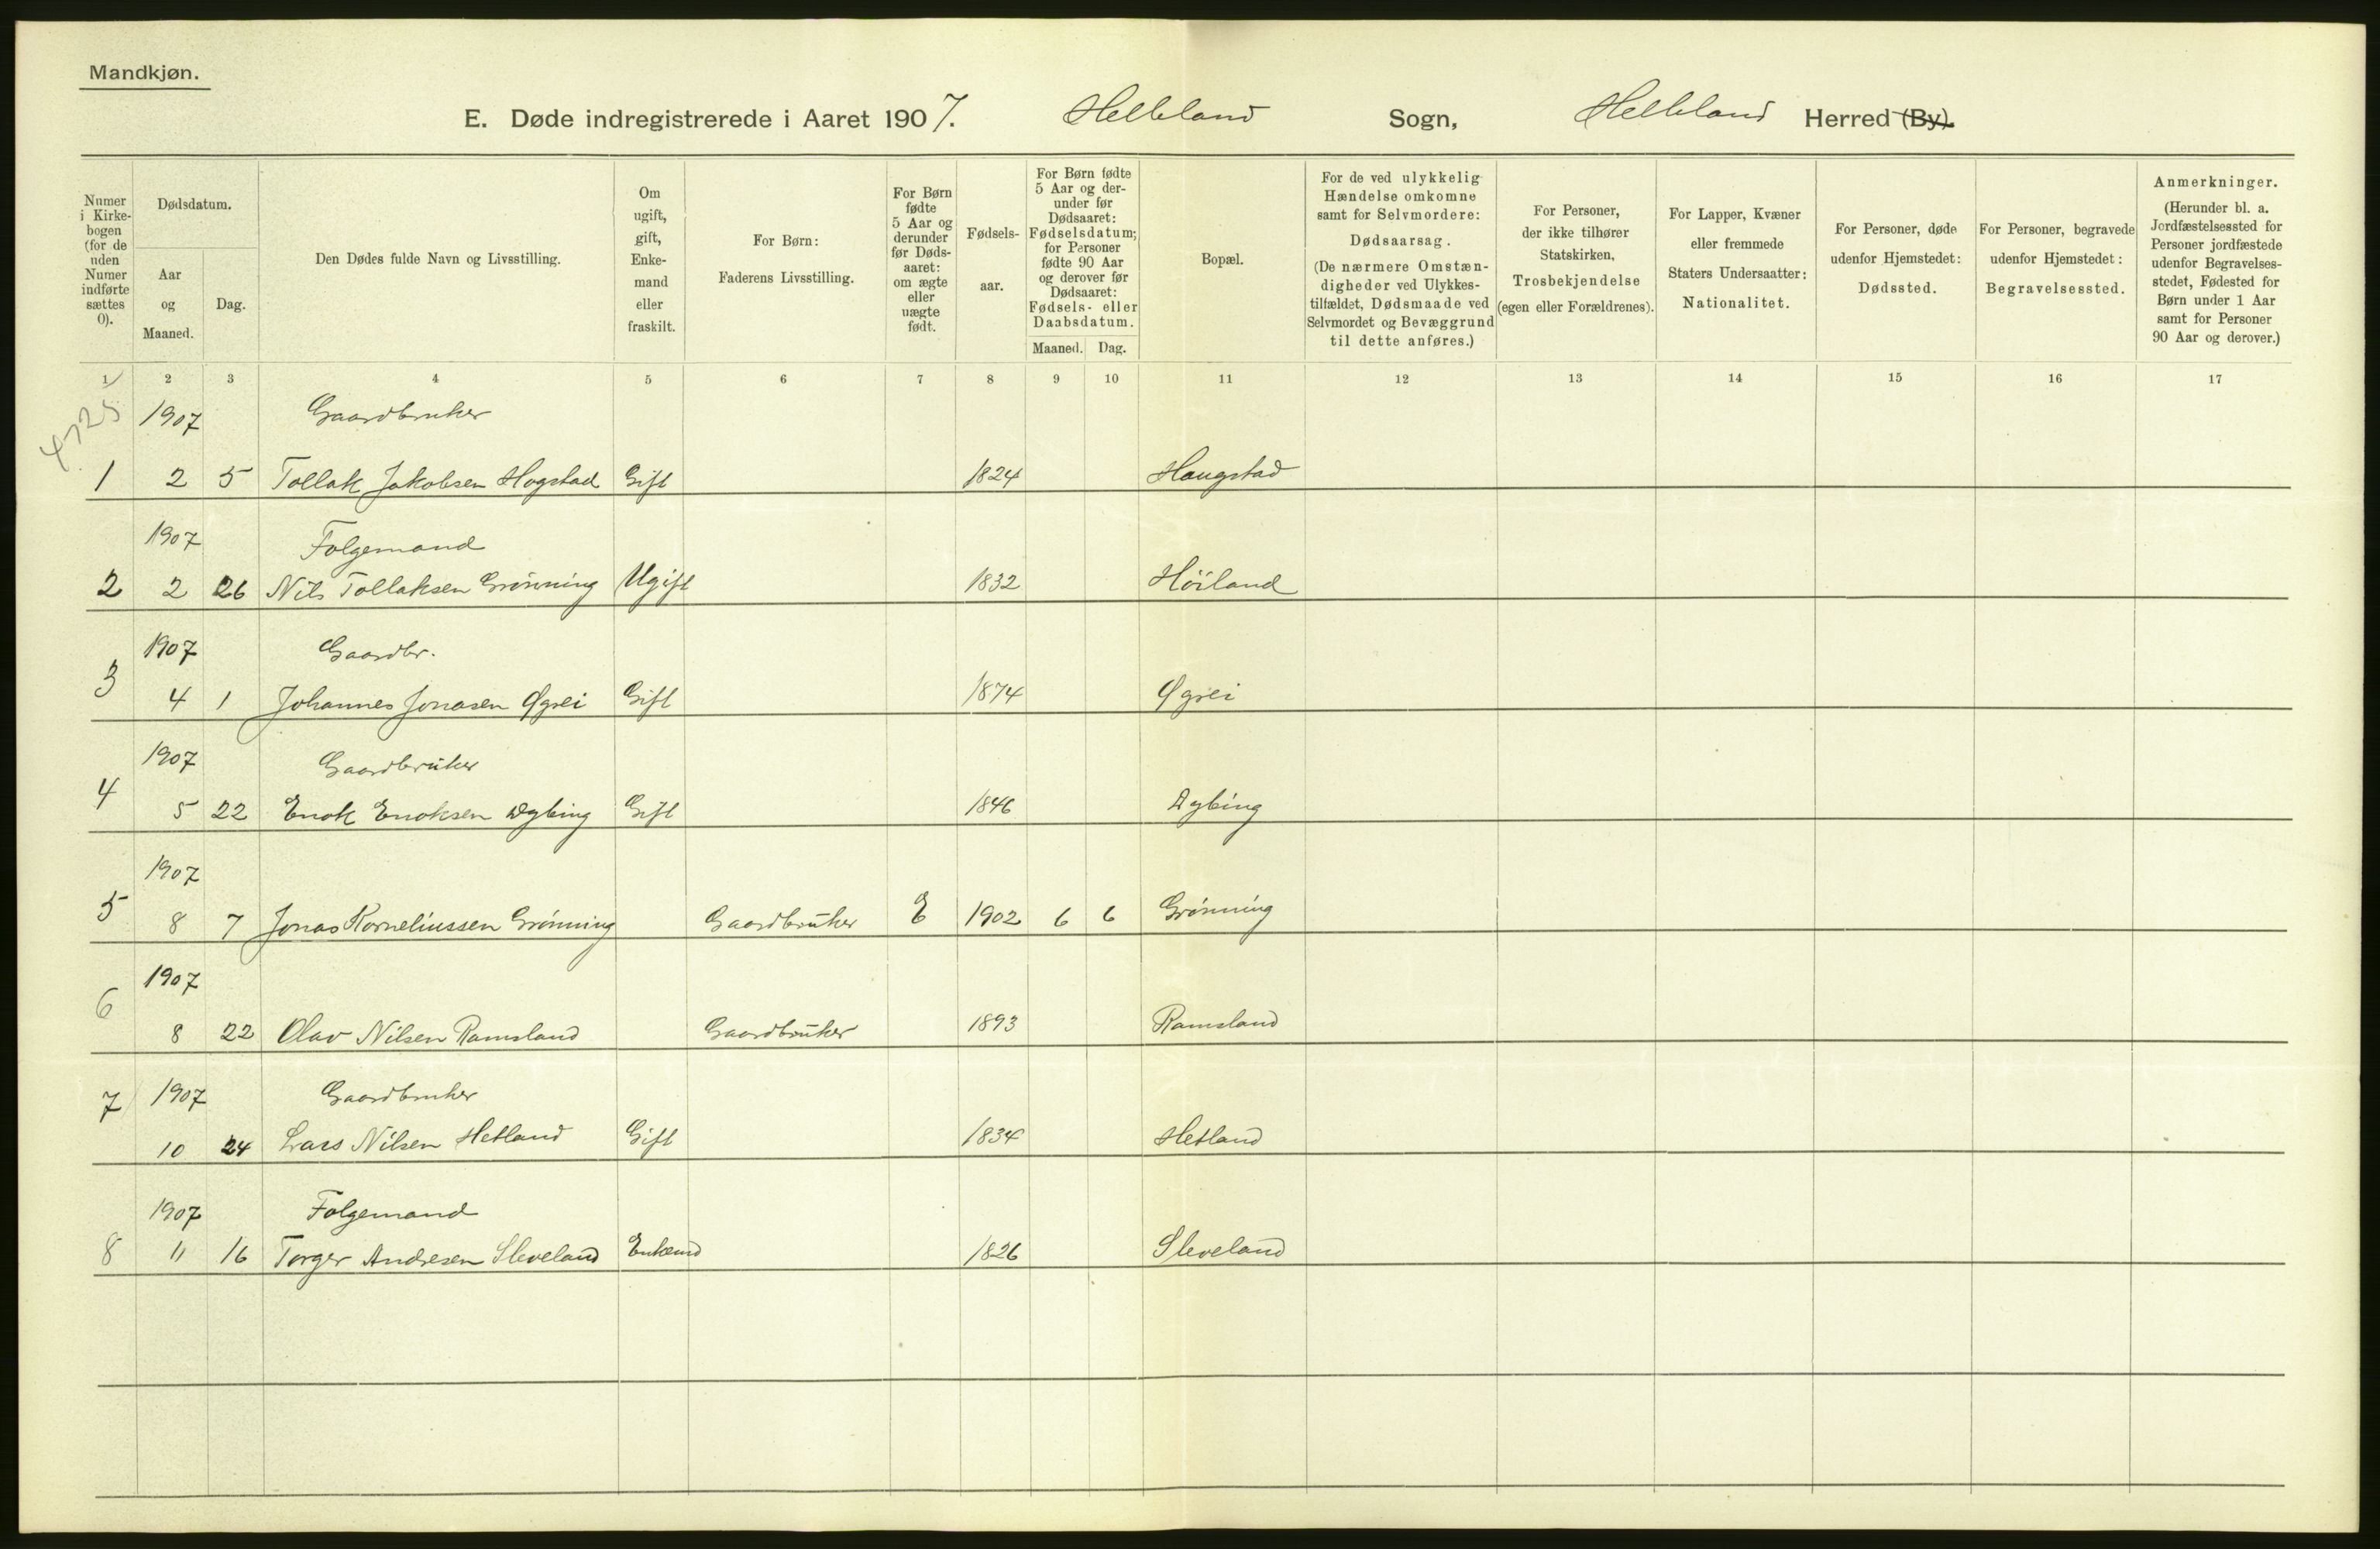 Mandkjøn.
E. Døde indregistrerede i Aaret 1907. Helleland Sogn, Helleland Herred (By).
Numer i Kirke-bogen (for de uden Numer indførte sættes 0).
Dødsdatum.
Aar og Maaned.
Dag.
Den Dødes fulde Navn og Livsstilling.
Om ugift, gift, Enke-mand eller fraskilt.
For Børn: Faderens Livsstilling.
For Børn fødte 5 Aar og derunder før Døds-aaret: om ægte eller uægte født.
Fødsels-aar.
For Børn fødte 5 Aar og der-under før Dødsaaret: Fødselsdatum; for Personer fødte 90 Aar og derover før Dødsaaret: Fødsels- eller Daabsdatum.
Maaned. Dag.
Bopæl.
For de ved ulykkelig Hændelse omkomne samt for Selvmordere: Dødsaarsag. (De nærmere Omstæn-digheder ved Ulykkes-tilfældet, Dødsmaade ved Selvmordet og Bevæggrund til dette anføres.)
For Personer, der ikke tilhører Statskirken, Trosbekjendelse (egen eller Forældrenes).
For Lapper, Kvæner eller fremmede Staters Undersaatter: Nationalitet.
For Personer, døde udenfor Hjemstedet: Dødssted.
For Personer, begravede udenfor Hjemstedet: Begravelsessted.
Anmerkninger. (Herunder bl. a. Jordfæstelsessted for Personer jordfæstede udenfor Begravelses-stedet, Fødested for Børn under 1 Aar samt for Personer 90 Aar og derover.)
1 2 3 4 5 6 7 8 9 10 11 12 13 14 15 16 17
1907 Gaardbruker
1 2 5 Tollak Jakobsen Hogstad Gift 1824 Haugstad
1907 Folgemand
2 2 26 Nils Tollaksen Grönning Ugift 1832 Höiland
1907 Gaardbr.
3 4 1 Johannes Jonasen Øgrei Gift 1874 Øgrei
1907 Gaardbruker
4 5 22 Enok Enoksen Dybing Gift 1846 Dybing
1907
5 8 7 Jonas Korneliussen Grönning Gaardbruker E 1902 6 6 Grönning
1907
6 8 22 Olav Nilsen Ramsland Gaardbruker 1893 Ramsland
7 1907 Gaardbruker
10 24 Lars Nilsen Hetland Gift 1834 Hetland
1907 Folgemand
8 11 16 Torger Andresen Sleveland Enkemd 1826 Sleveland